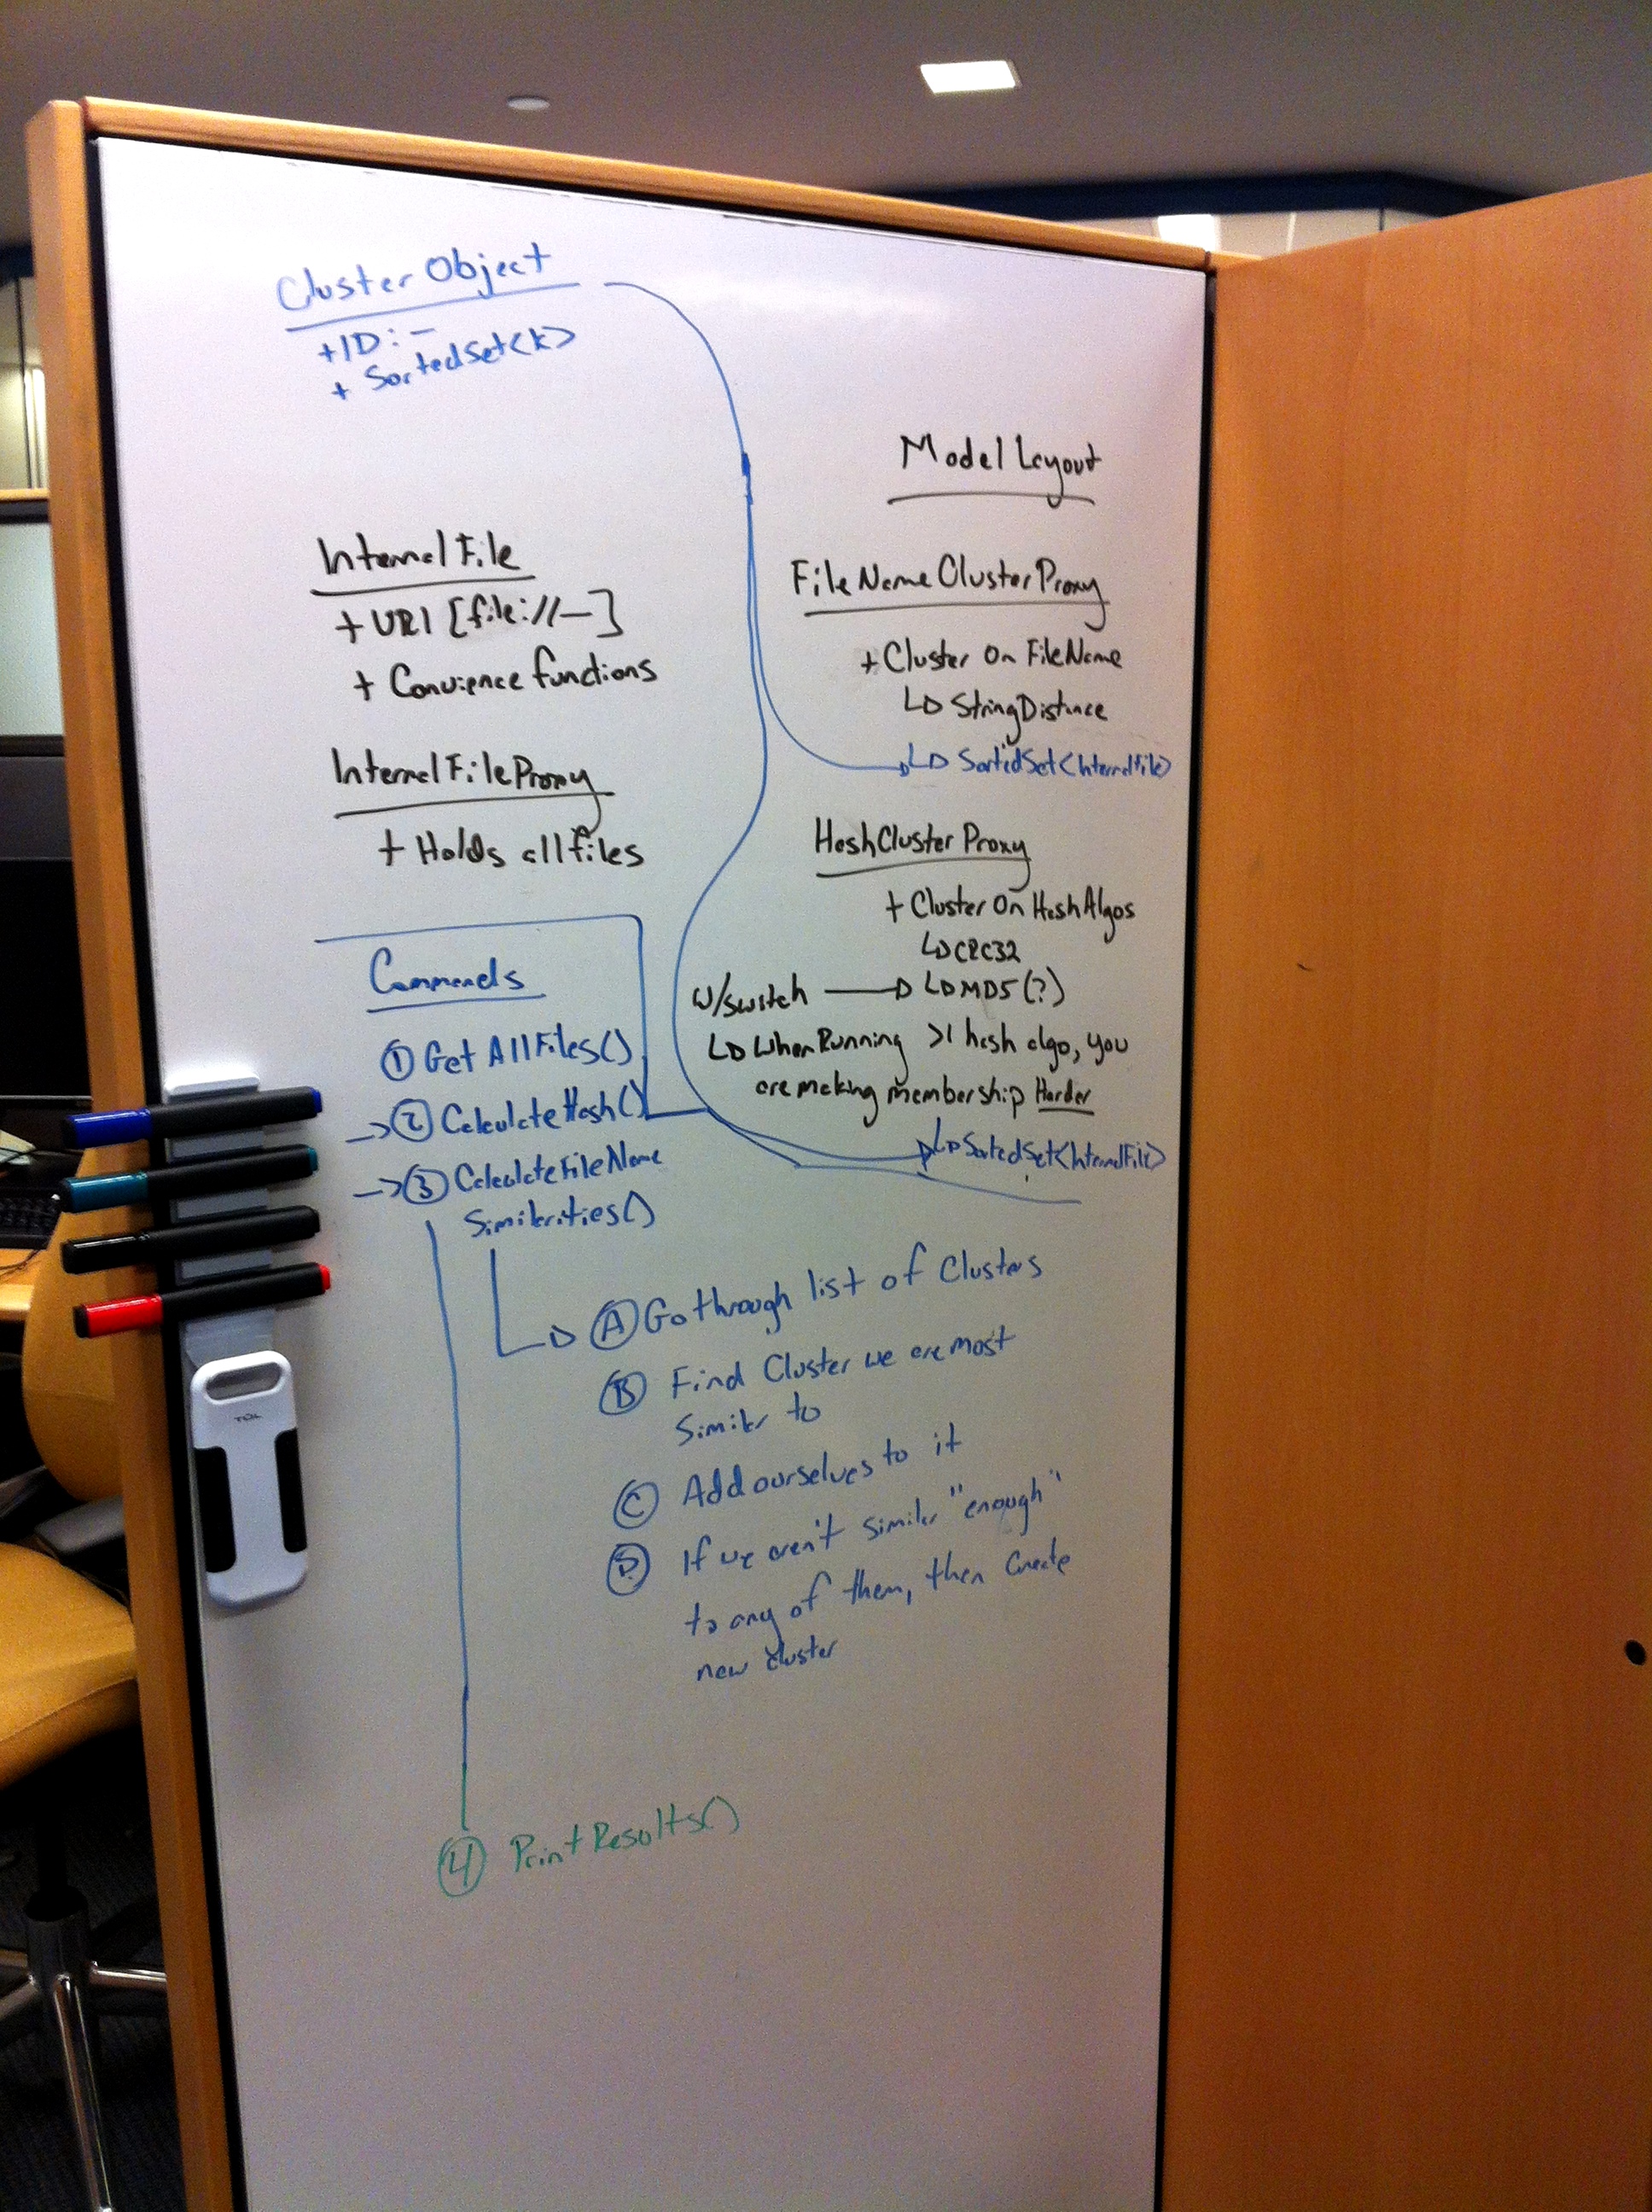 Cluster Object
+ ID: –
+ SortedSet<k>
Model Layout
InternalFile
+ URI [file://—]
+ Convience functions
InternalFileProxy
+ Holds all files
FileNameClusterProxy
+ Cluster On FileName
StringDistance
SortedSet<InternalFile>
HashClusterProxy
+ Cluster On HashAlgos
CRC32
w/switch → MD5(?)
When Running >1 hash algo, you
are making membership Harder
SortedSet<InternalFile>
Commands
① Get AllFiles()
→② CalculateHash()
→③ CalculateFileName
Similarities()
Ⓐ Go through list of Clusters
Ⓑ Find Cluster we are most
Similar to
Ⓒ Add ourselves to it
Ⓓ If we aren't similar "enough"
to any of them, then create
new cluster
④ PrintResults()
TCL